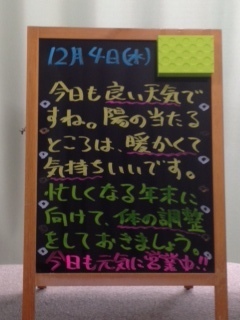 12月4日(水)
今日も良い天気で
すね。陽の当たる
ところは、暖かくて
気持ちいいです。
忙しくなる年末に
向けて、体の調整
をしておきましょう。
今日も元気に営業中!!